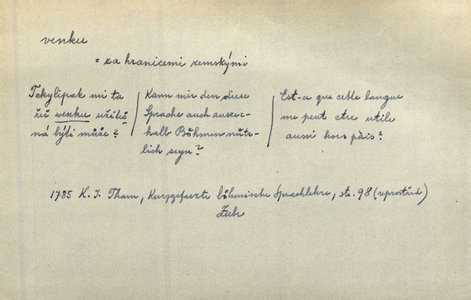 venku
= za hranicemi zemskými
Takylipak mi ta
řeč venku užiteč
ná býti může?
Kann mir den diese
Sprache auch ausser-
halb Böhmen nütz-
lich seyn?
Est-a que cette langue
me peut etre utile
aussi hors païs?
1785 K. I. Tham, Kurzgefasste böhmische Sprachlehre, str. 98 (uprostřed)
Zubr